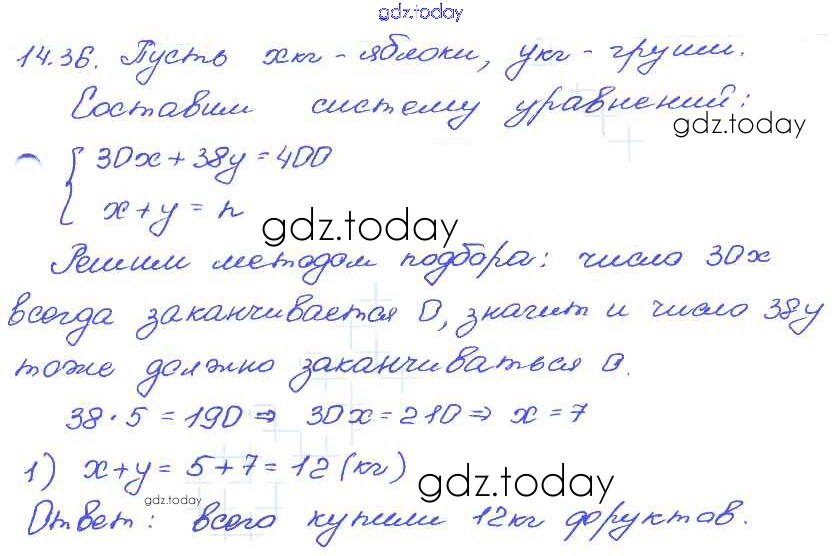 gdz.today
14.36. Пусть x кг - яблоки, y кг - груши.
Составим систему уравнений:
gdz.today
30x + 38y = 400
x + y = n
gdz.today
Решим методом подбора: число 30x
всегда заканчивается 0, значит и число 38y
тоже должно заканчиваться 0.
38 · 5 = 190 ⇒ 30x = 210 ⇒ x = 7
1) x + y = 5 + 7 = 12 (кг)
gdz.today
gdz.today
Ответ: всего купили 12 кг фруктав.